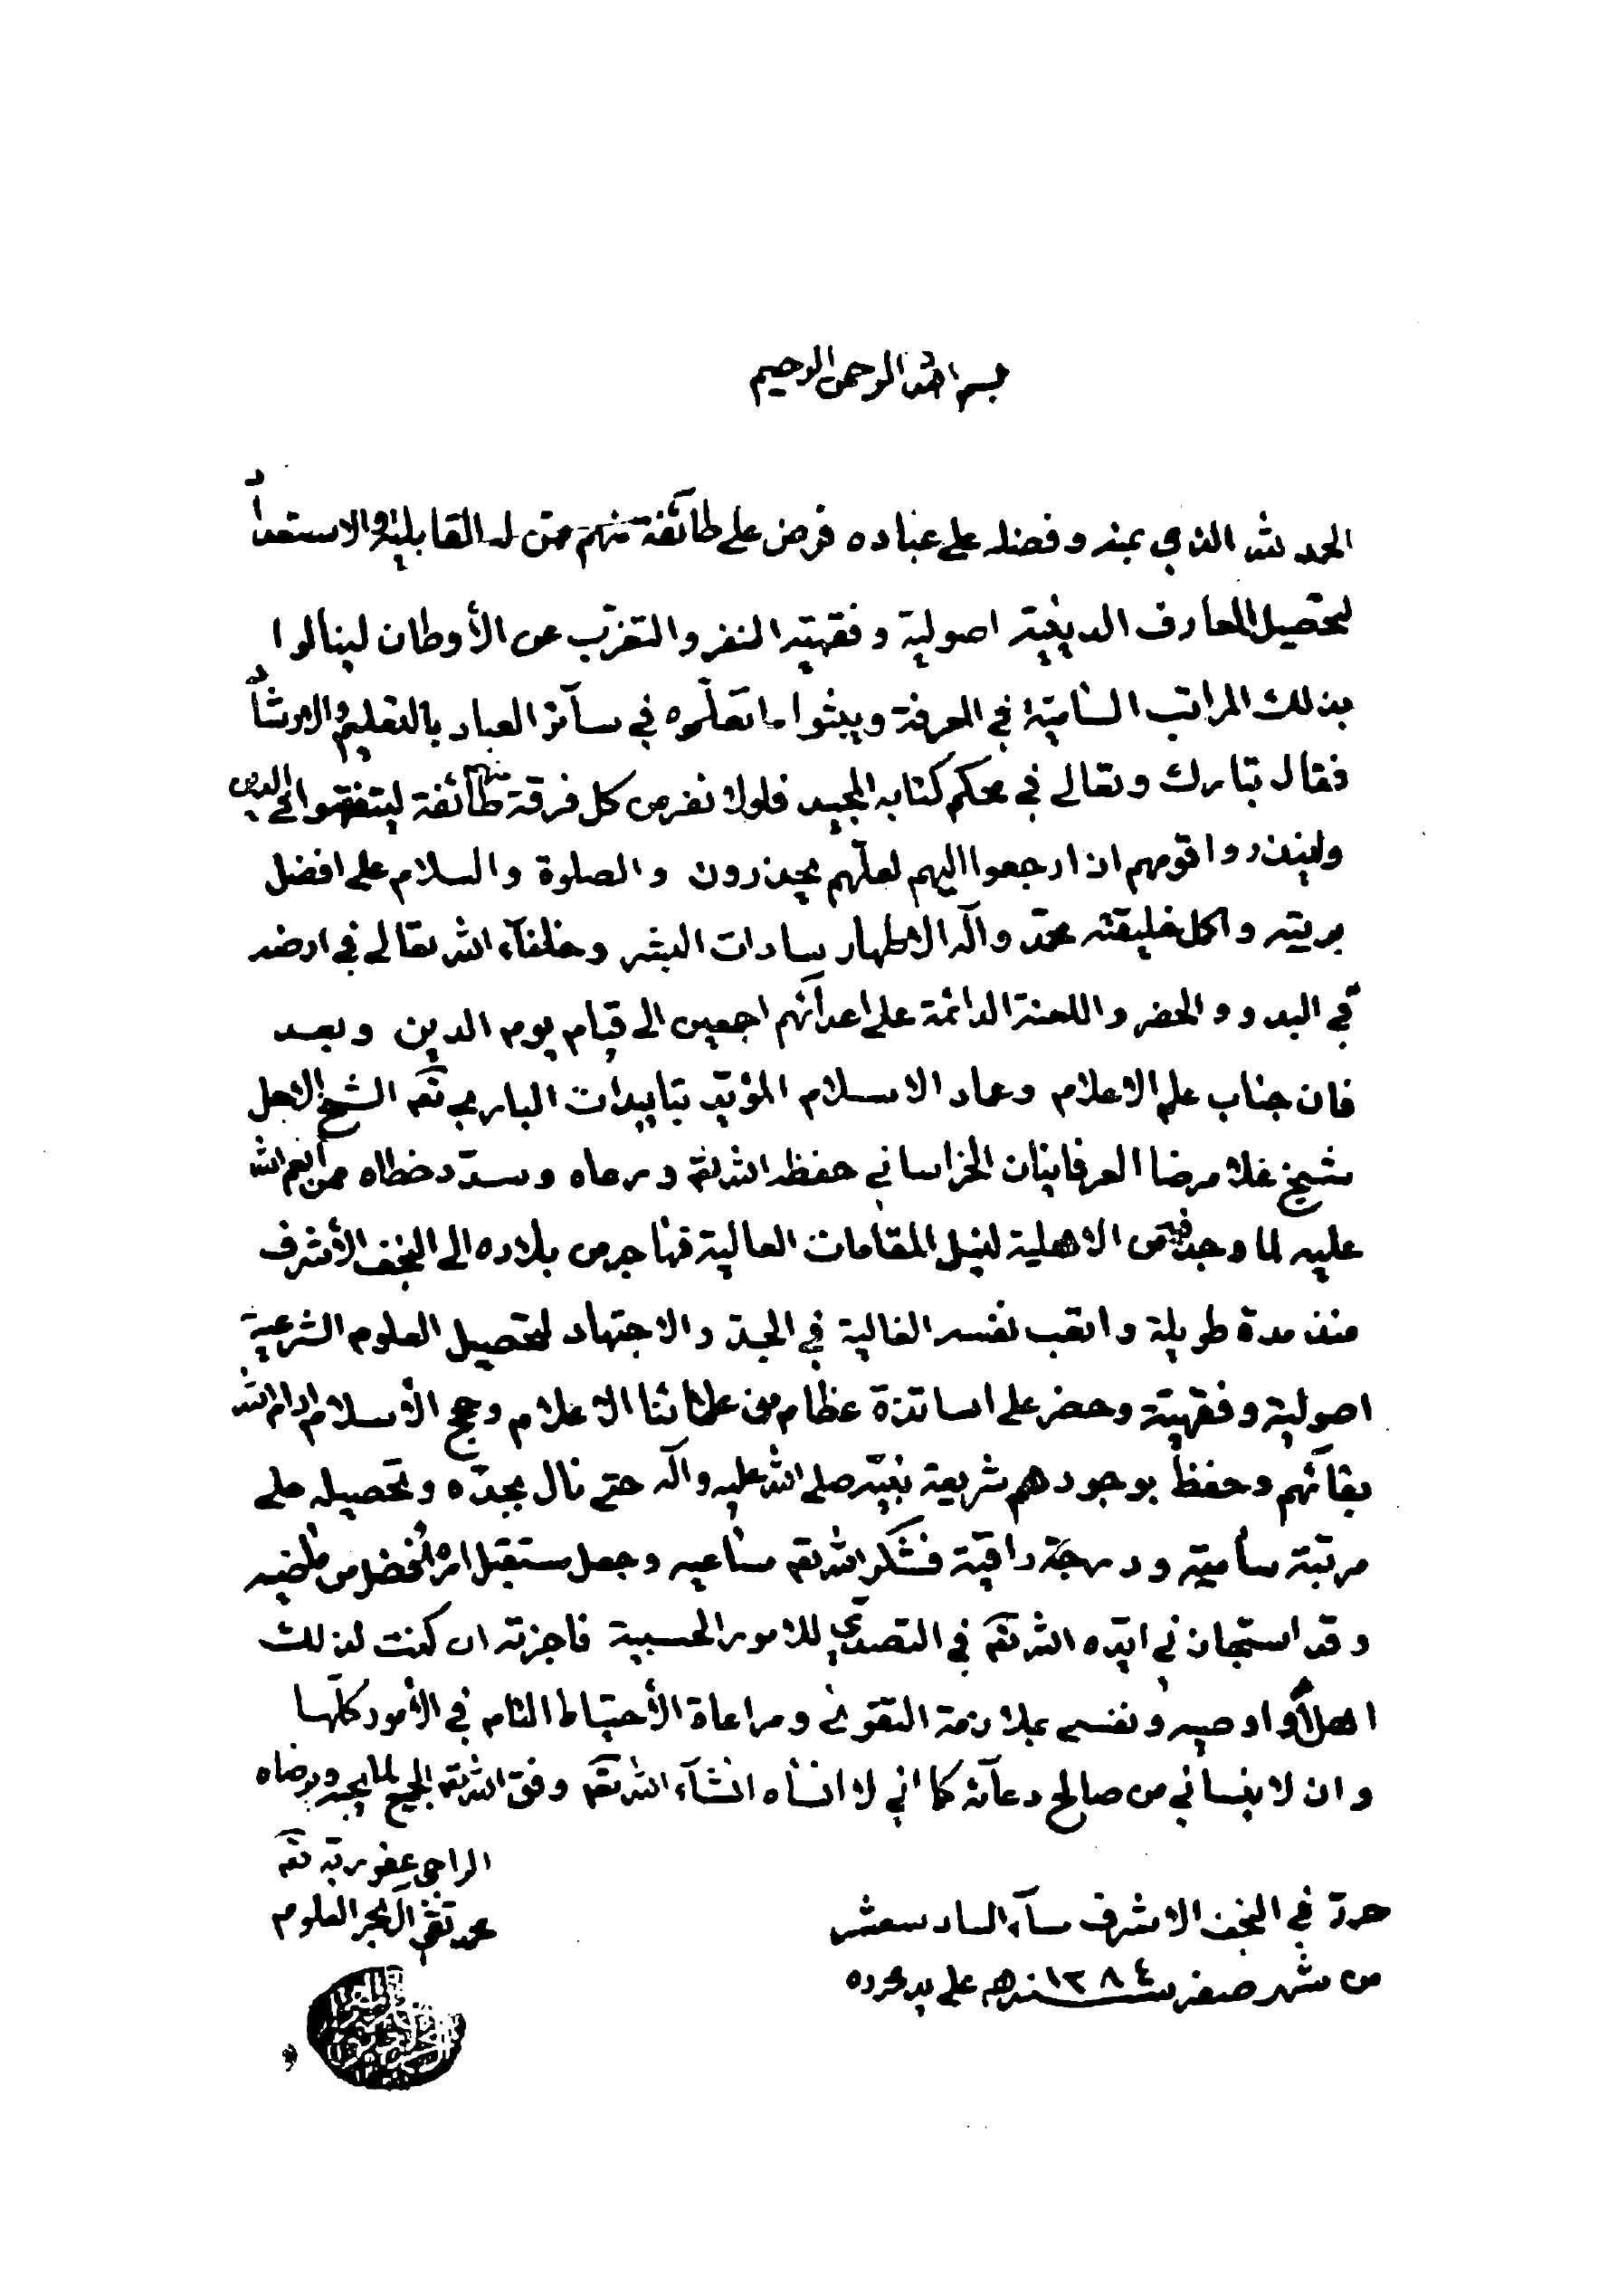 بسم الله الرحمن الرحيم
الحمد لله الذي بمنه وفضله على عباده فرض على طائفة منهم ممّن له القابلية والاستعداد
لتحصيل المعارف الدينية اصولية وفقهية النفر والتغرّب عن الأوطان لينالوا
بذلك المراتب السامية في المعرفة ويبثوا ما تعلّموه في سآئر العباد بالتعليم والارشاد
فقال تبارك وتعالى في محكم كتابه المجيد فلولا نفر من كل فرقة منهم طآئفة ليتفقهوا في الدين
ولينذروا قومهم اذا رجعوا اليهم لعلّهم يحذرون والصلوة والسلام على افضل
بريته واكمل خليقته محمّد وآله الاطهار سادات البشر وخلفآء الله تعالى في ارضه
في البدو والحضر واللعنة الدائمة على اعدآئهم اجمعين الى قيام يوم الدين وبعد
فان جناب علم الاعلام وعماد الاسلام المؤيّد بتاييدات الباري تعم الشيخ الاجل
شيخ غلامرضا العرفانيان الخراساني حفظه الله تعم ورعاه وسدّد خطاه ممن أنعم الله
عليه لما وجد فيه من الاهلية لنيل المقامات العالية فهاجر من بلاده الى النجف الأشرف
منذ مدة طويلة واتعب نفسه الغالية في الجدّ والاجتهاد لتحصيل العلوم الشرعية
اصولية وفقهية وحضر على اساتذة عظام من علمائنا الاعلام وحجج الأسلام ادام الله
بقآئهم وحفظ بوجودهم شريعة نبيّه صلى الله عليه وآله حتى نال بجدّه وتحصيله على
مرتبة سامية ودرجة راقية فشكر الله تعم مساعيه وجعل مستقبل امره أفضل من ماضيه
وقد استجازني ايّده الله تعم في التصدّي للامور الحسبية فاجزته ان كنت لذلك
اهلاً واوصيه ونفسي بملازمة التقوى ومراعاة الأحتياط التام في الأمور كلّها
وان لا ينساني من صالح دعآئه كما اني لا انساه انشآء الله تعم وفق الله تعم الجميع لما يحبه ويرضاه
الراجي عفو ربّه تعم
محمد تقي آل بحر العلوم
حرر في النجف الاشرف مسآء السادس عشر
من شهر صفر سنة ١٣٨٤ هـ على يد محرره